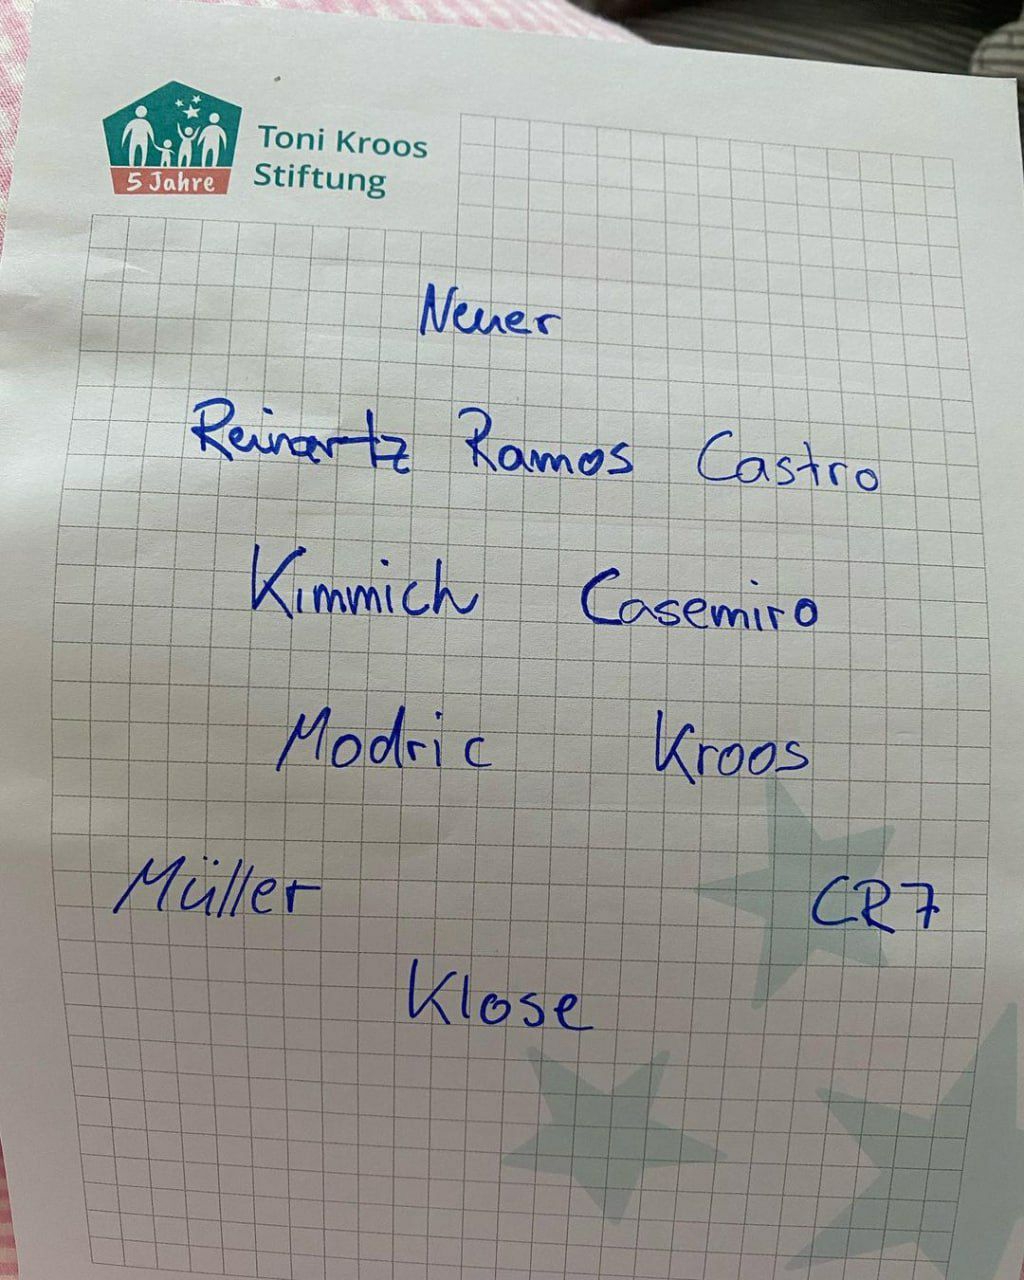 Toni Kroos
Stiftung
5 Jahre
Neuer
Reinartz Ramos Castro
Kimmich Casemiro
Modric Kroos
Müller CR7
Klose